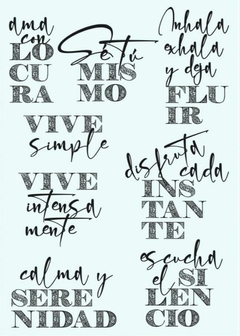 ama
con
LO
CU
RA
Sé tú
MIS
MO
Inhala
exhala
y deja
FLU
IR
VIVE
simple
disfruta
cada
INS
TAN
TE
VIVE
intensa
mente
escucha
el SI
LEN
CIO
calma y
SERE
NIDAD